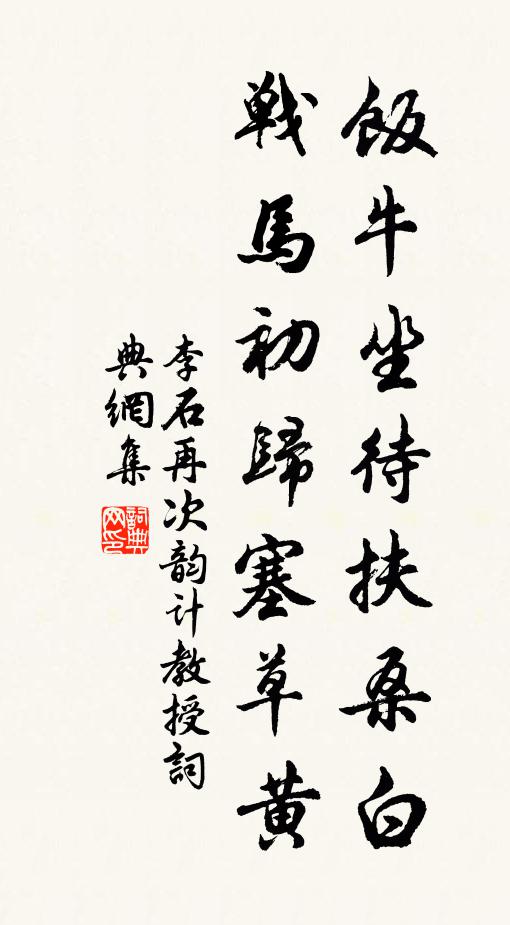 飯牛坐待扶桑白
戰馬初歸塞草黄
李石再次韵计教授詞
典網集
詞典
网印